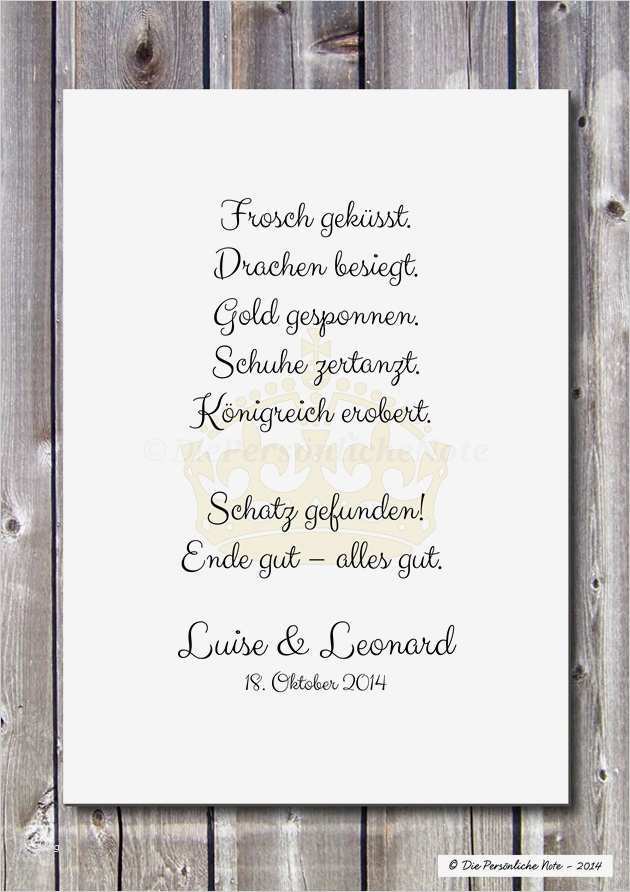 Frosch geküsst.
Drachen besiegt.
Gold gesponnen.
Schuhe zertanzt.
Königreich erobert.
©DiePersönlicheNote
Schatz gefunden!
Ende gut – alles gut.
Luise & Leonard
18. Oktober 2014
© Die Persönliche Note - 2014